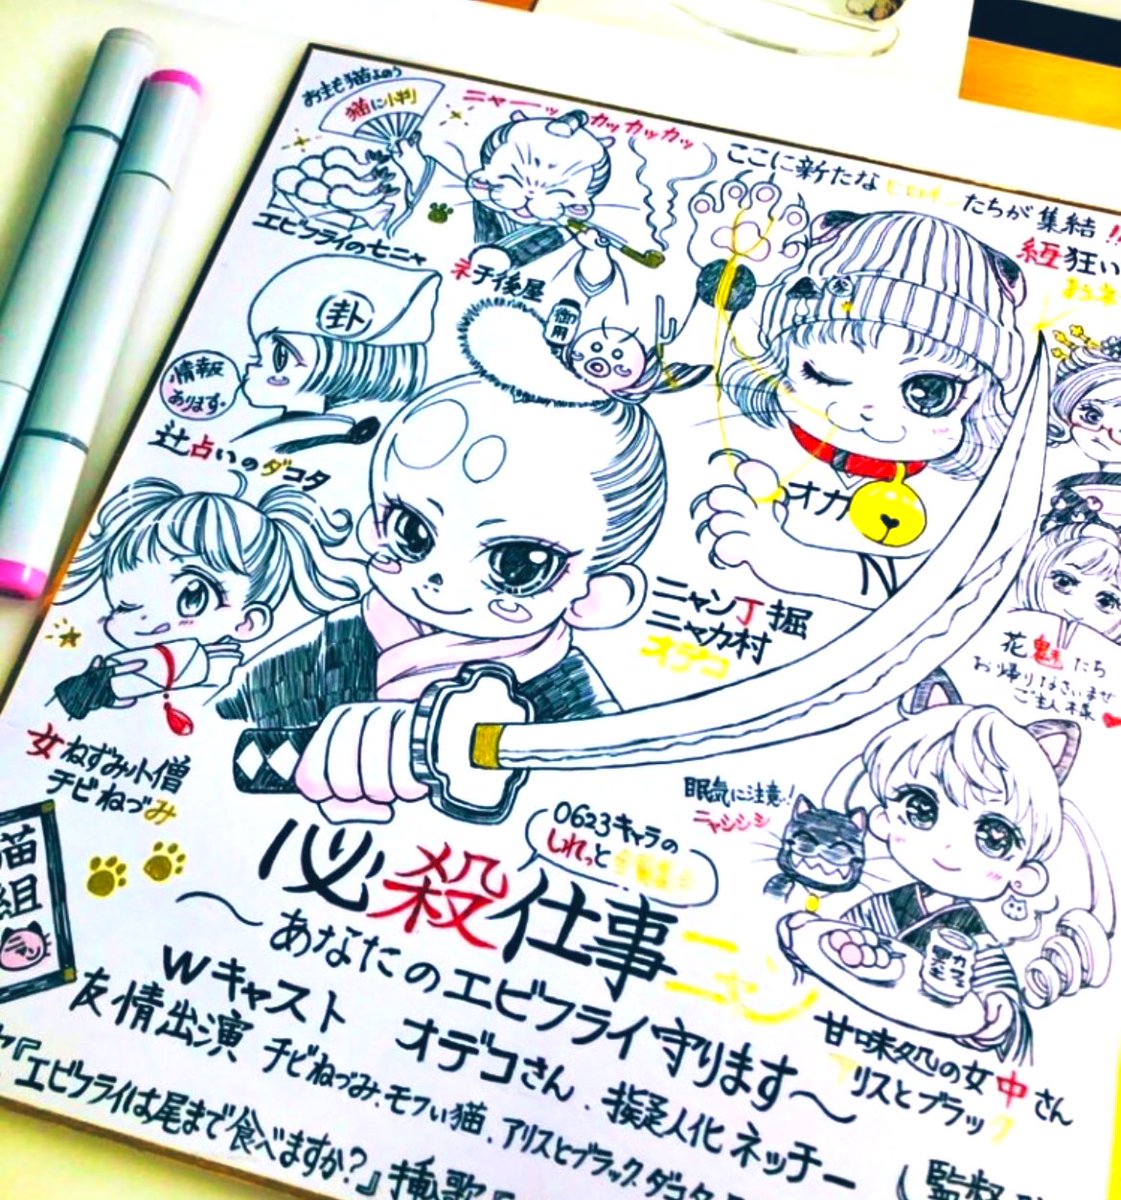 お主も猫よのう
猫に小判
ニャーッ カッカッカッ
エビフライの七ニャ
ネチ後屋
ここに新たなヒロインたちが集結!!
経狂い
卦
御用
情報
あります。
辻占いのダコタ
オカ
ニャン丁掘
ニャカ村
オデコ
花魁たち
お帰りなさいませ
ご主人様
女ねずみ小僧
チビねづみ
眠気に注意!
ニャシシシ
0623キャラの
しれっと
猫
組
必殺仕事ニャン
〜あなたのエビフライ守ります〜
カフェ
甘味処の女中さん
アリスとブラック
Wキャスト オデコさん.擬人化ネッチー
友情出演 チビねづみ.モフい猫.アリスとブラック.ダコタ
『エビフライは尾まで食べますか?』挿歌
監督